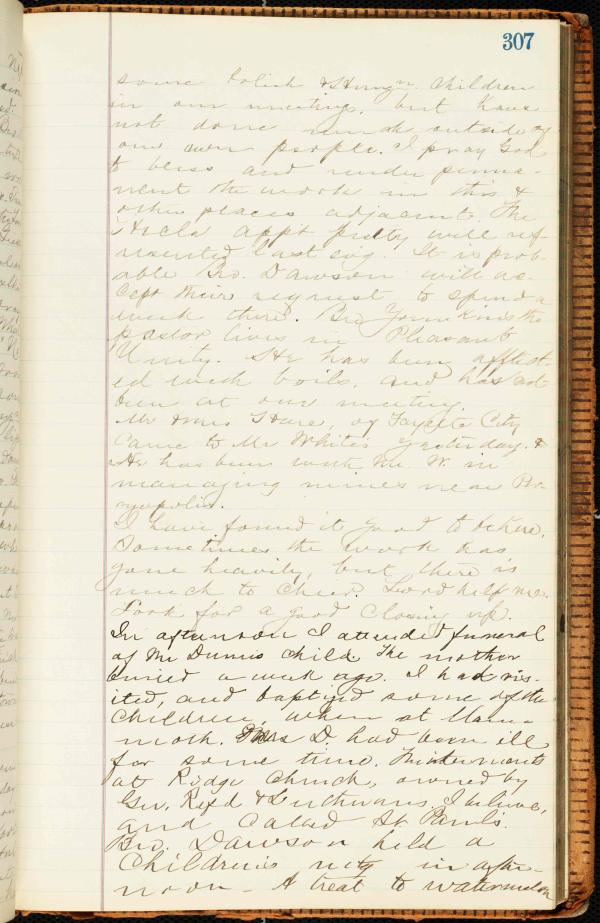 307
some Polish & Hungn. children
in our meetings, but have
not done much outside of
our own people. I pray God
to bless and render perma-
nent the work in this &
other places adjacent. The
Hecla appt pretty well rep-
resented last evg. It is prob-
able Bro. Dawson will ac-
cept their request to spend a
week there. Bro Younkins the
pastor lives in Pleasant
Unity. He has been afflict-
ed with boils, and has not
been at our meeting.
Mr & Mrs Hare, of Fayette City
came to Mr White's yesterday. &
He has been with Mr. W. in
managing mines near Per-
ryopolis.
I have found it good to be here.
Sometimes the work has
gone heavily, but there is
much to cheer. Lord help me.
Look for a good closing up.
In afternoon I attended funeral
of Mr Dunn's child. The mother
buried a week ago. I had vis-
ited, and baptized some of the
children, when at Mam-
moth. Mrs D. had been ill
for some time. Interments
at Ridge Church, owned by
Ger. Refd & Lutherans, I believe,
and called St. Paul's.
Bro. Dawson held a
Children's mtg in after-
noon - A treat to watermelon